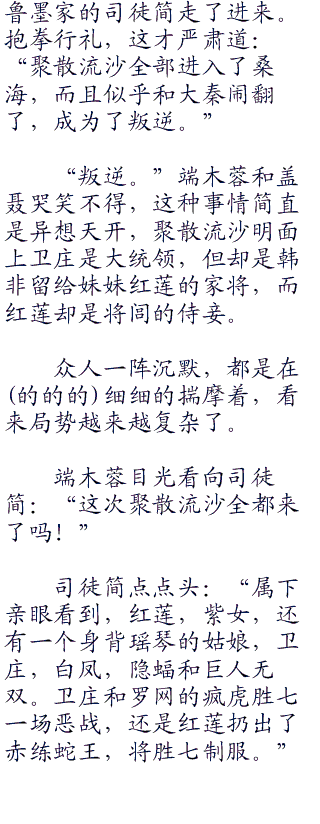 鲁墨家的司徒简走了进来。
抱拳行礼，这才严肃道：
“聚散流沙全部进入了桑
海，而且似乎和大秦闹翻
了，成为了叛逆。”
“叛逆。”端木蓉和盖
聂哭笑不得，这种事情简直
是异想天开，聚散流沙明面
上卫庄是大统领，但却是韩
非留给妹妹红莲的家将，而
红莲却是将闾的侍妾。
众人一阵沉默，都是在
(的的的)细细的揣摩着，看
来局势越来越复杂了。
端木蓉目光看向司徒
简：“这次聚散流沙全都来
了吗！”
司徒简点点头：“属下
亲眼看到，红莲，紫女，还
有一个身背瑶琴的姑娘，卫
庄，白凤，隐蝠和巨人无
双。卫庄和罗网的疯虎胜七
一场恶战，还是红莲扔出了
赤练蛇王，将胜七制服。”